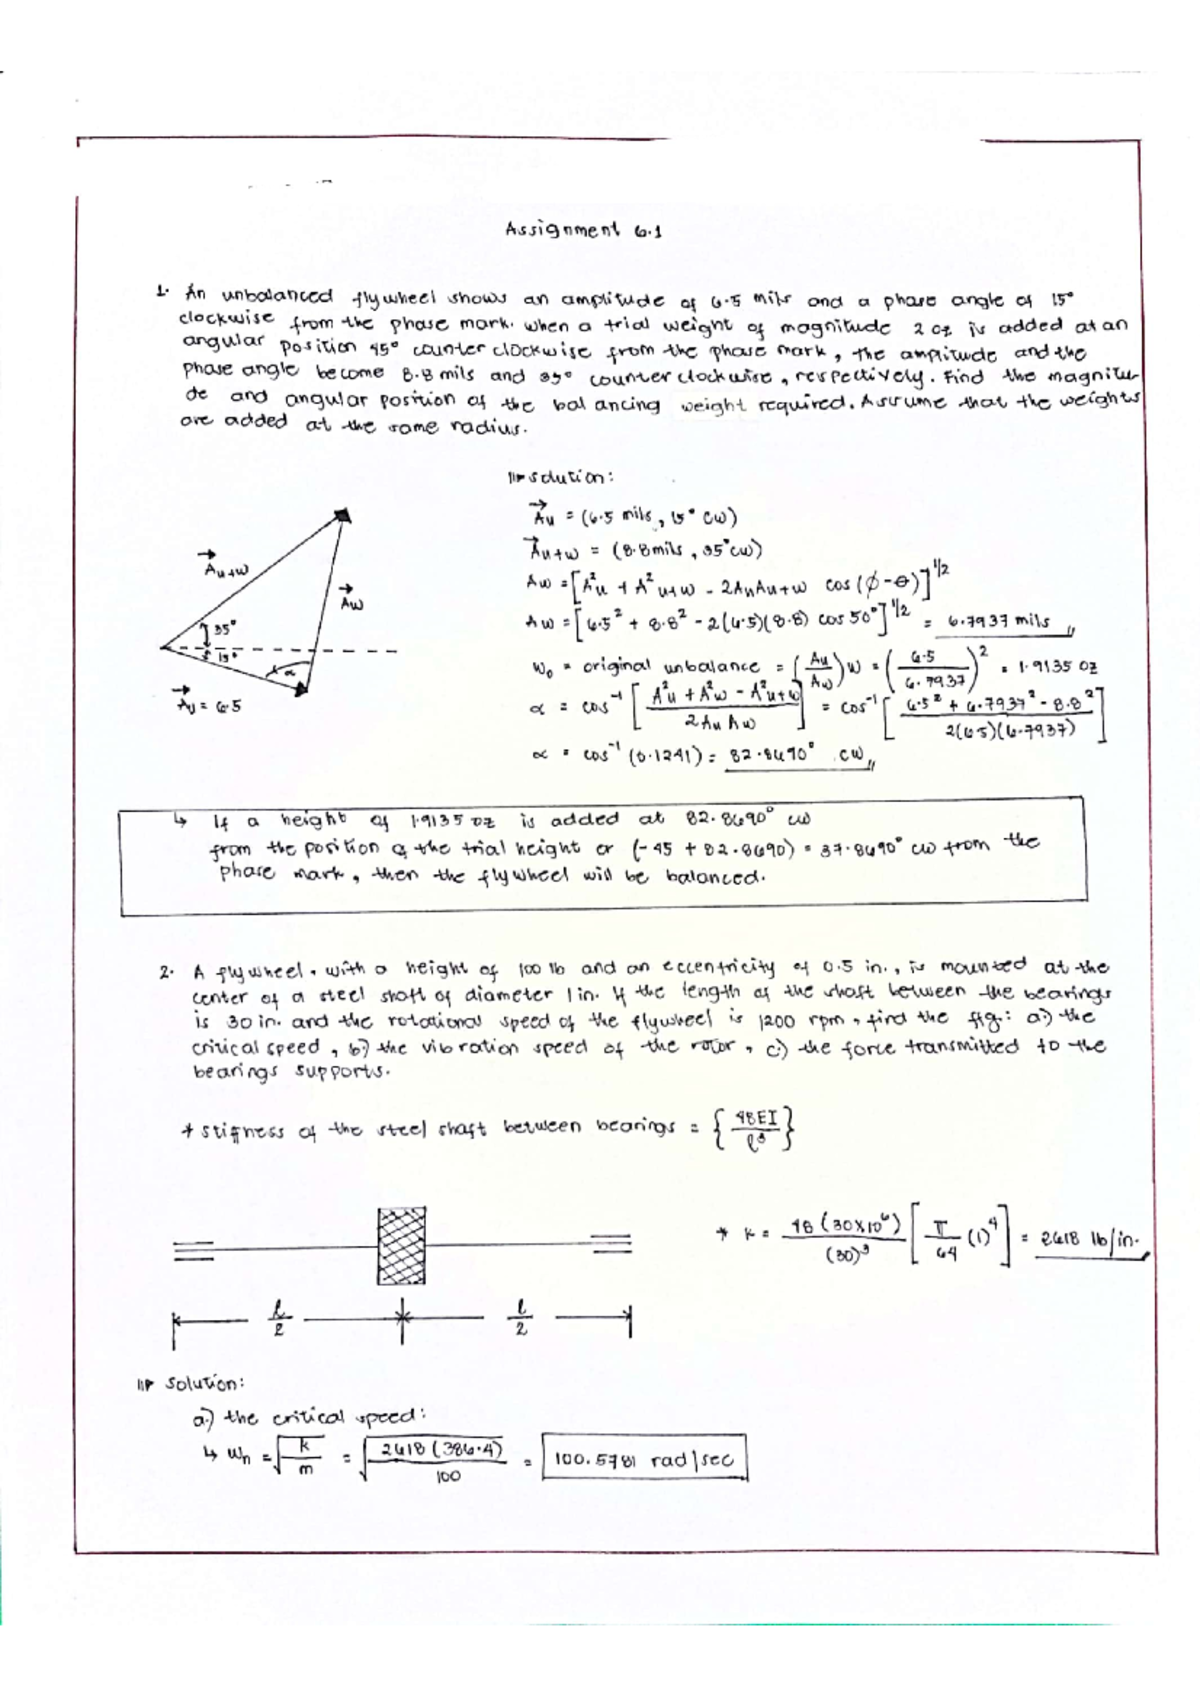 Assignment 6.1
1. An unbalanced flywheel shows an amplitude of 6.5 mils and a phase angle of 15°
clockwise from the phase mark. When a trial weight of magnitude 2 oz is added at an
angular position 45° counter clockwise from the phase mark, the amplitude and the
phase angle become 8.8 mils and 35° counter clockwise, respectively. Find the magnitu-
de and angular position of the balancing weight required. Assume that the weights
are added at the same radius.
solution:
→Au = (6.5 mils, 15° cw)
→Au+w = (8.8 mils, 35° cw)
Aw = [A²u + A²u+w - 2AuAu+w cos(ϕ-θ)]^1/2
Aw = [6.5² + 8.8² - 2(6.5)(8.8) cos 50°]^1/2 = 6.7937 mils
W₀ = original unbalance = (Au/Aw)W = (6.5/6.7937)² = 1.9135 oz
α = cos⁻¹[(A²u + A²w - A²u+w)/(2AuAw)] = cos⁻¹[(6.5² + 6.7937² - 8.8²)/(2(6.5)(6.7937))]
α = cos⁻¹(0.1241) = 82.8690° cw
→Au+w
→Aw
35°
15°
α
→Au = 6.5
↳ If a height of 1.9135 oz is added at 82.8690° cw
from the position of the trial height or (-45 + 82.8690) = 37.8690° cw from the
phase mark, then the flywheel will be balanced.
2. A flywheel, with a height of 100 lb and an eccentricity of 0.5 in., is mounted at the
center of a steel shaft of diameter 1 in. If the length of the shaft between the bearings
is 30 in. and the rotational speed of the flywheel is 1200 rpm, find the ffg: a.) the
critical speed, b.) the vibration speed of the rotor, c.) the force transmitted to the
bearings supports.
* stiffness of the steel shaft between bearings = {48EI/l³}
* k = 48(30x10⁶)/(30)³ [π/64 (1)⁴] = 2618 lb/in.
l/2 l/2
Solution:
a.) the critical speed:
↳ ωn = √(k/m) = √(2618(386.4)/100) = 100.5781 rad/sec